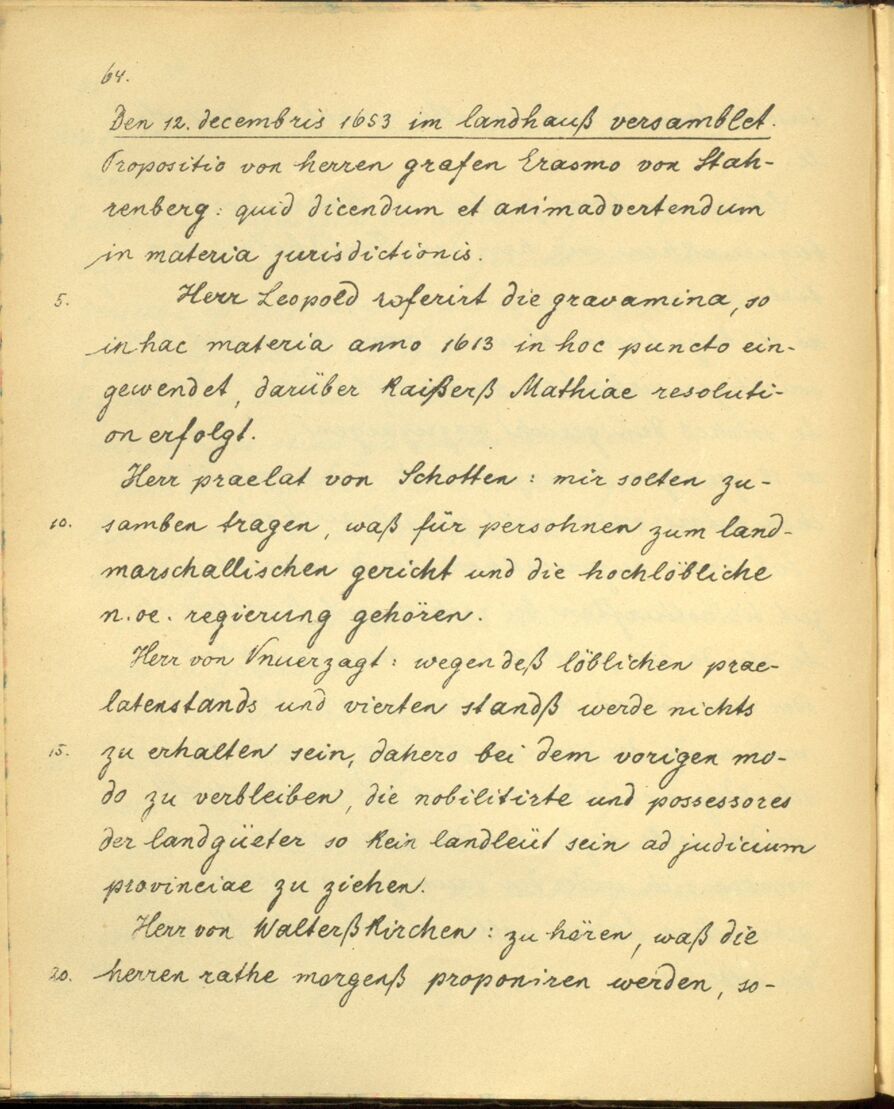 64.
Den 12. decembris 1653 im landhauß versamblet.
Propositio von herren grafen Erasmo von Stah-
renberg: quid dicendum et animadvertendum
in materia jurisdictionis.
5. Herr Leopold referirt die gravamina, so
in hac materia anno 1613 in hoc puncto ein-
gewendet, darüber Kaißerß Mathiae resoluti-
on erfolgt.
Herr praelat von Schotten: mir solten zu-
10. samben tragen, waß für persohnen zum land-
marschallischen gericht und die hochlöbliche
n.oe. regierung gehören.
Herr von Vnuerzagt: wegen deß löblichen prae-
latenstands und vierten standß werde nichts
15. zu erhalten sein, dahero bei dem vorigen mo-
do zu verbleiben, die nobilitirte und possessores
der landgüeter so kein landleüt sein ad judicium
provinciae zu ziehen.
Herr von Walterßkirchen: zu hören, waß die
20. herren rathe morgenß proponiren werden, so-